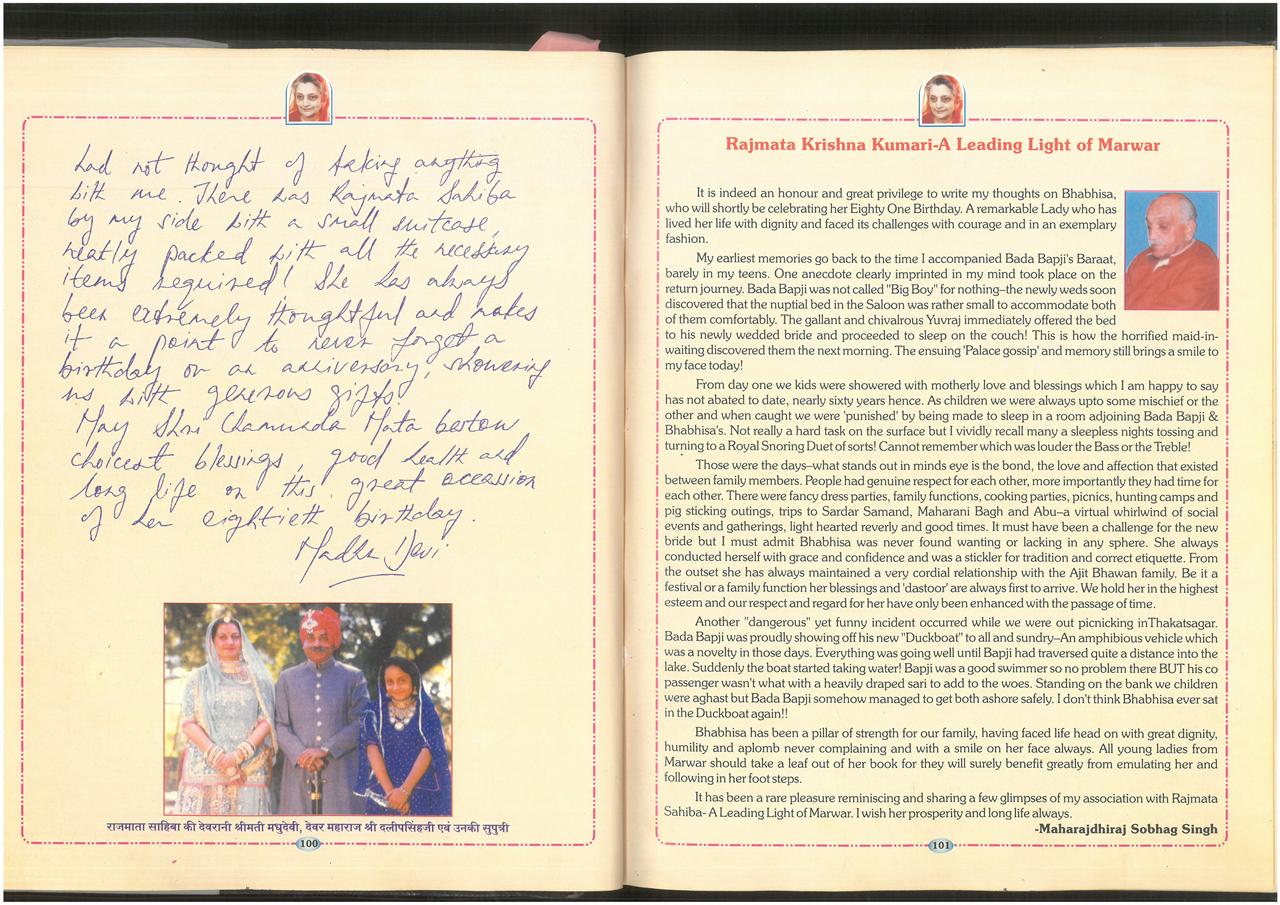 had not thought of taking anything
with me. There was Rajmata Sahiba
by my side with a small suitcase,
neatly packed with all the necessary
items required! She has always
been extremely thoughtful and makes
it a point to never forget a
birthday or an anniversary, showering
us with generous gifts.
May Shri Chamunda Mata bestow
choicest blessings, good health and
long life on this great occassion
of her eightieth birthday.
Madhu Devi
राजमाता साहिबा की देवरानी श्रीमती मधुदेवी, देवर महाराज श्री दलीपसिंहजी एवं उनकी सुपुत्री
100
Rajmata Krishna Kumari-A Leading Light of Marwar
It is indeed an honour and great privilege to write my thoughts on Bhabhisa,
who will shortly be celebrating her Eighty One Birthday. A remarkable Lady who has
lived her life with dignity and faced its challenges with courage and in an exemplary
fashion.
My earliest memories go back to the time I accompanied Bada Bapji's Baraat,
barely in my teens. One anecdote clearly imprinted in my mind took place on the
return journey. Bada Bapji was not called "Big Boy" for nothing–the newly weds soon
discovered that the nuptial bed in the Saloon was rather small to accommodate both
of them comfortably. The gallant and chivalrous Yuvraj immediately offered the bed
to his newly wedded bride and proceeded to sleep on the couch! This is how the horrified maid-in-
waiting discovered them the next morning. The ensuing 'Palace gossip' and memory still brings a smile to
my face today!
From day one we kids were showered with motherly love and blessings which I am happy to say
has not abated to date, nearly sixty years hence. As children we were always upto some mischief or the
other and when caught we were 'punished' by being made to sleep in a room adjoining Bada Bapji &
Bhabhisa's. Not really a hard task on the surface but I vividly recall many a sleepless nights tossing and
turning to a Royal Snoring Duet of sorts! Cannot remember which was louder the Bass or the Treble!
Those were the days–what stands out in minds eye is the bond, the love and affection that existed
between family members. People had genuine respect for each other, more importantly they had time for
each other. There were fancy dress parties, family functions, cooking parties, picnics, hunting camps and
pig sticking outings, trips to Sardar Samand, Maharani Bagh and Abu–a virtual whirlwind of social
events and gatherings, light hearted reverly and good times. It must have been a challenge for the new
bride but I must admit Bhabhisa was never found wanting or lacking in any sphere. She always
conducted herself with grace and confidence and was a stickler for tradition and correct etiquette. From
the outset she has always maintained a very cordial relationship with the Ajit Bhawan family. Be it a
festival or a family function her blessings and 'dastoor' are always first to arrive. We hold her in the highest
esteem and our respect and regard for her have only been enhanced with the passage of time.
Another "dangerous" yet funny incident occurred while we were out picnicking inThakatsagar.
Bada Bapji was proudly showing off his new "Duckboat" to all and sundry–An amphibious vehicle which
was a novelty in those days. Everything was going well until Bapji had traversed quite a distance into the
lake. Suddenly the boat started taking water! Bapji was a good swimmer so no problem there BUT his co
passenger wasn't what with a heavily draped sari to add to the woes. Standing on the bank we children
were aghast but Bada Bapji somehow managed to get both ashore safely. I don't think Bhabhisa ever sat
in the Duckboat again!!
Bhabhisa has been a pillar of strength for our family, having faced life head on with great dignity,
humility and aplomb never complaining and with a smile on her face always. All young ladies from
Marwar should take a leaf out of her book for they will surely benefit greatly from emulating her and
following in her foot steps.
It has been a rare pleasure reminiscing and sharing a few glimpses of my association with Rajmata
Sahiba- A Leading Light of Marwar. I wish her prosperity and long life always.
-Maharajdhiraj Sobhag Singh
101